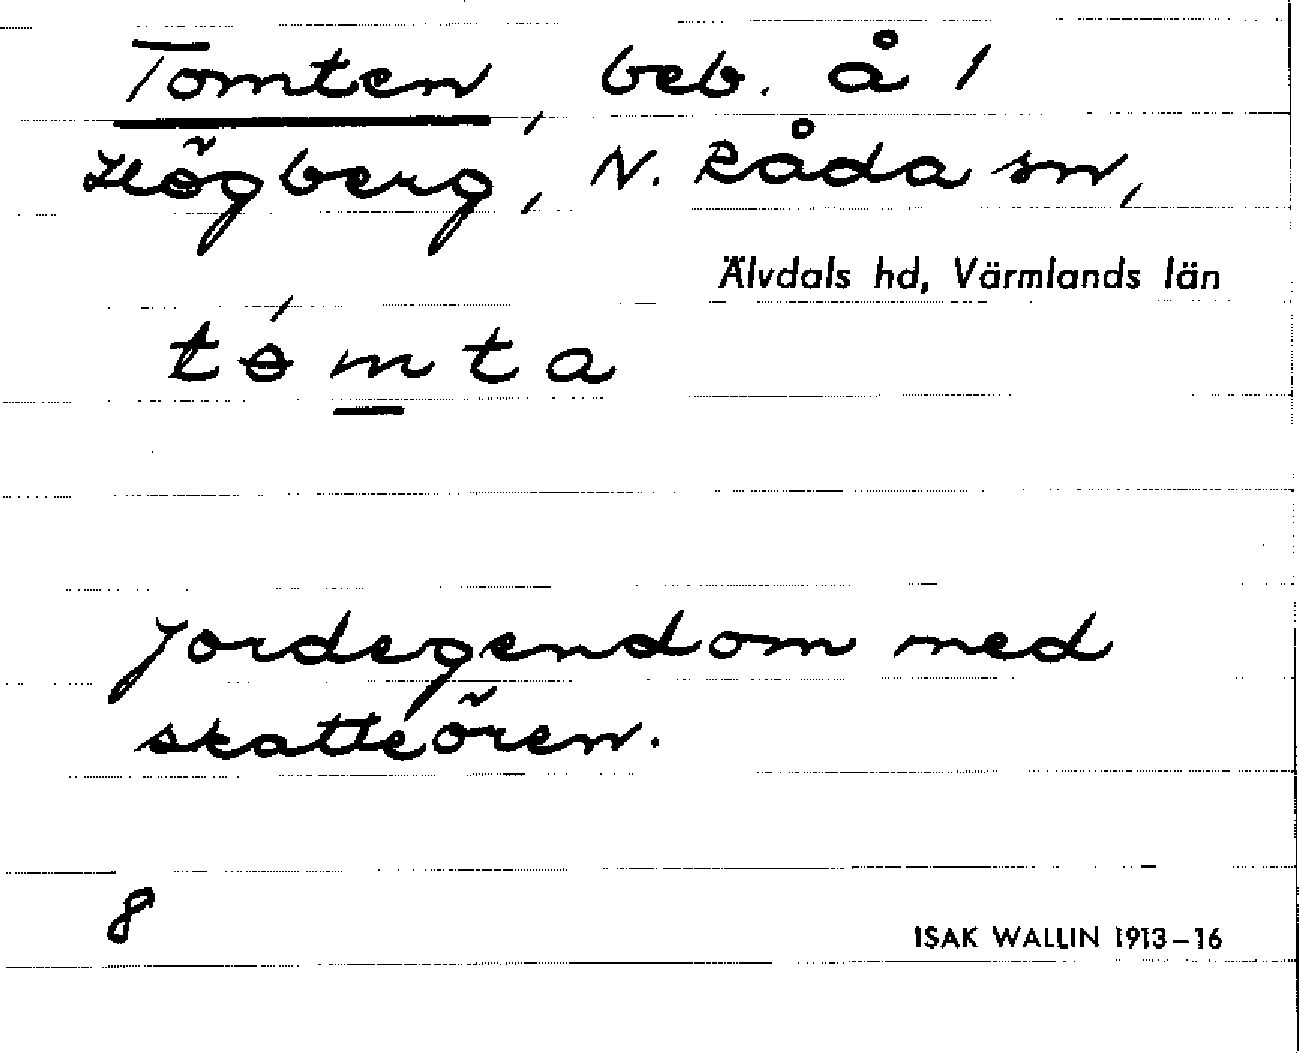 Tomten, beb. å 1
Högberg, N. Råda sn,
Älvdals hd, Värmlands län
tɵ́mta
Jordegendom med
skatteören.
8
ISAK WALLIN 1913–16